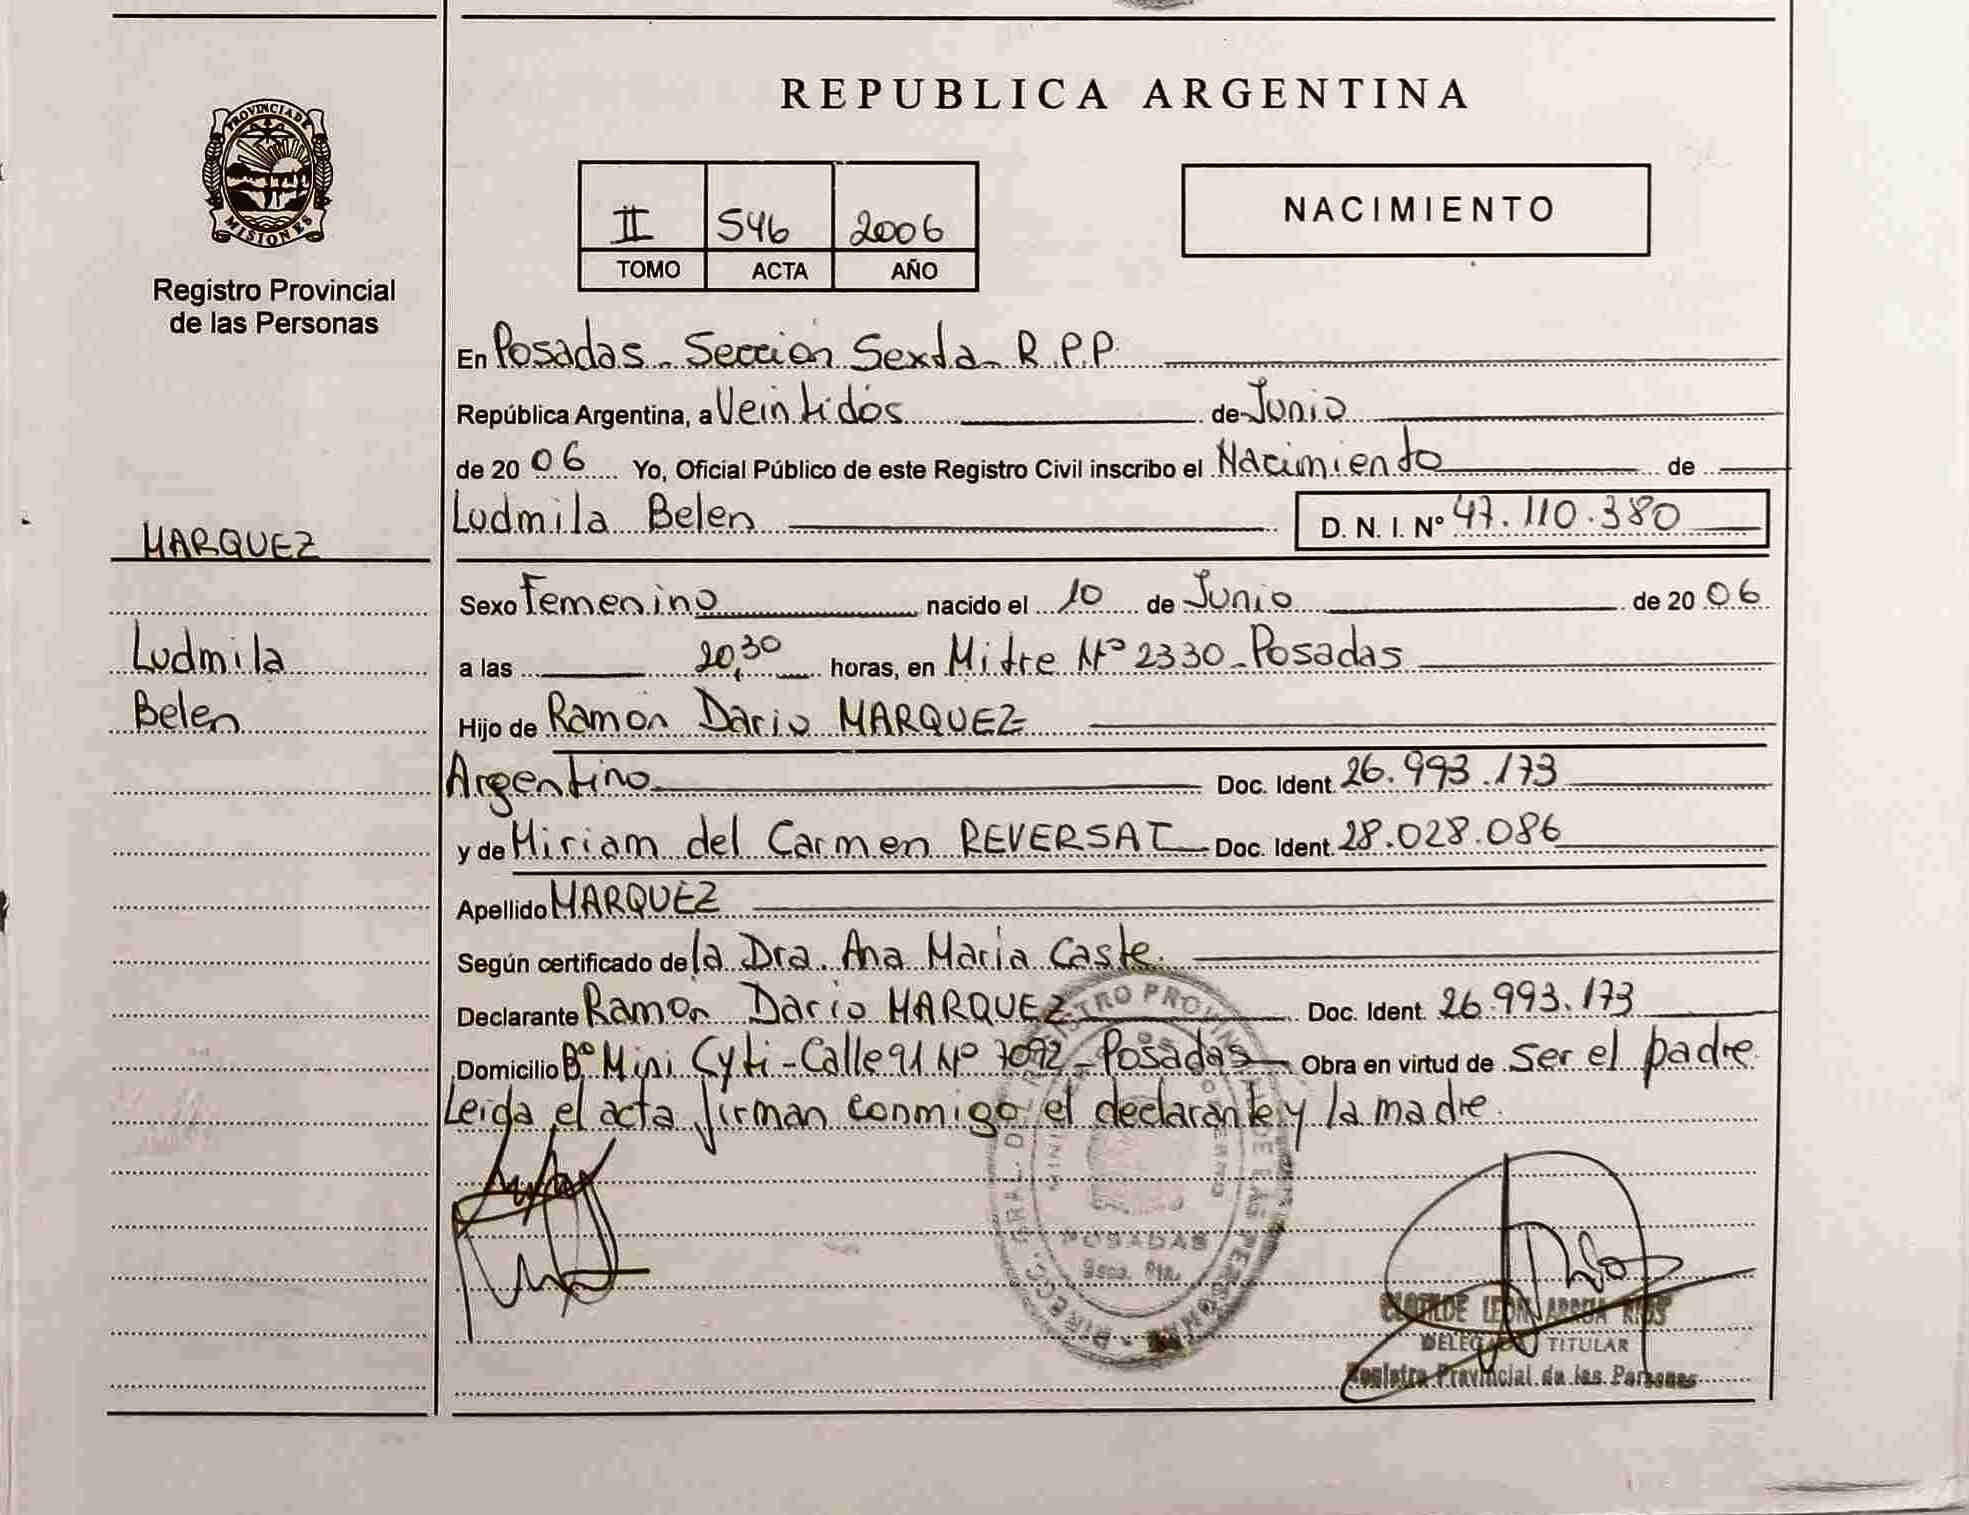 PROVINCIA DE
MISIONES
Registro Provincial
de las Personas
MARQUEZ
Ludmila
Belen
REPUBLICA ARGENTINA
II 546 2006
TOMO ACTA AÑO
NACIMIENTO
En Posadas - Sección Sexta - R.P.P.
República Argentina, a Veintidós de Junio
de 20 06 Yo, Oficial Público de este Registro Civil inscribo el Nacimiento de
Ludmila Belen D. N. I. Nº 47.110.380
Sexo Femenino nacido el 10 de Junio de 20 06
a las 20,30 horas, en Mitre Nº 2330 - Posadas
Hijo de Ramón Dario MARQUEZ
Argentino Doc. Ident. 26.993.173
y de Miriam del Carmen REVERSAT Doc. Ident. 28.028.086
Apellido MARQUEZ
Según certificado de la Dra. Ana Maria Caste.
Declarante Ramón Dario MARQUEZ Doc. Ident. 26.993.173
Domicilio Bº Mini Cyti - Calle 91 Nº 7092 - Posadas Obra en virtud de ser el padre
Leida el acta firman conmigo el declarante y la madre.
POSADAS
CLOTILDE LEON
DELEGADO TITULAR
Registro Provincial de las Personas